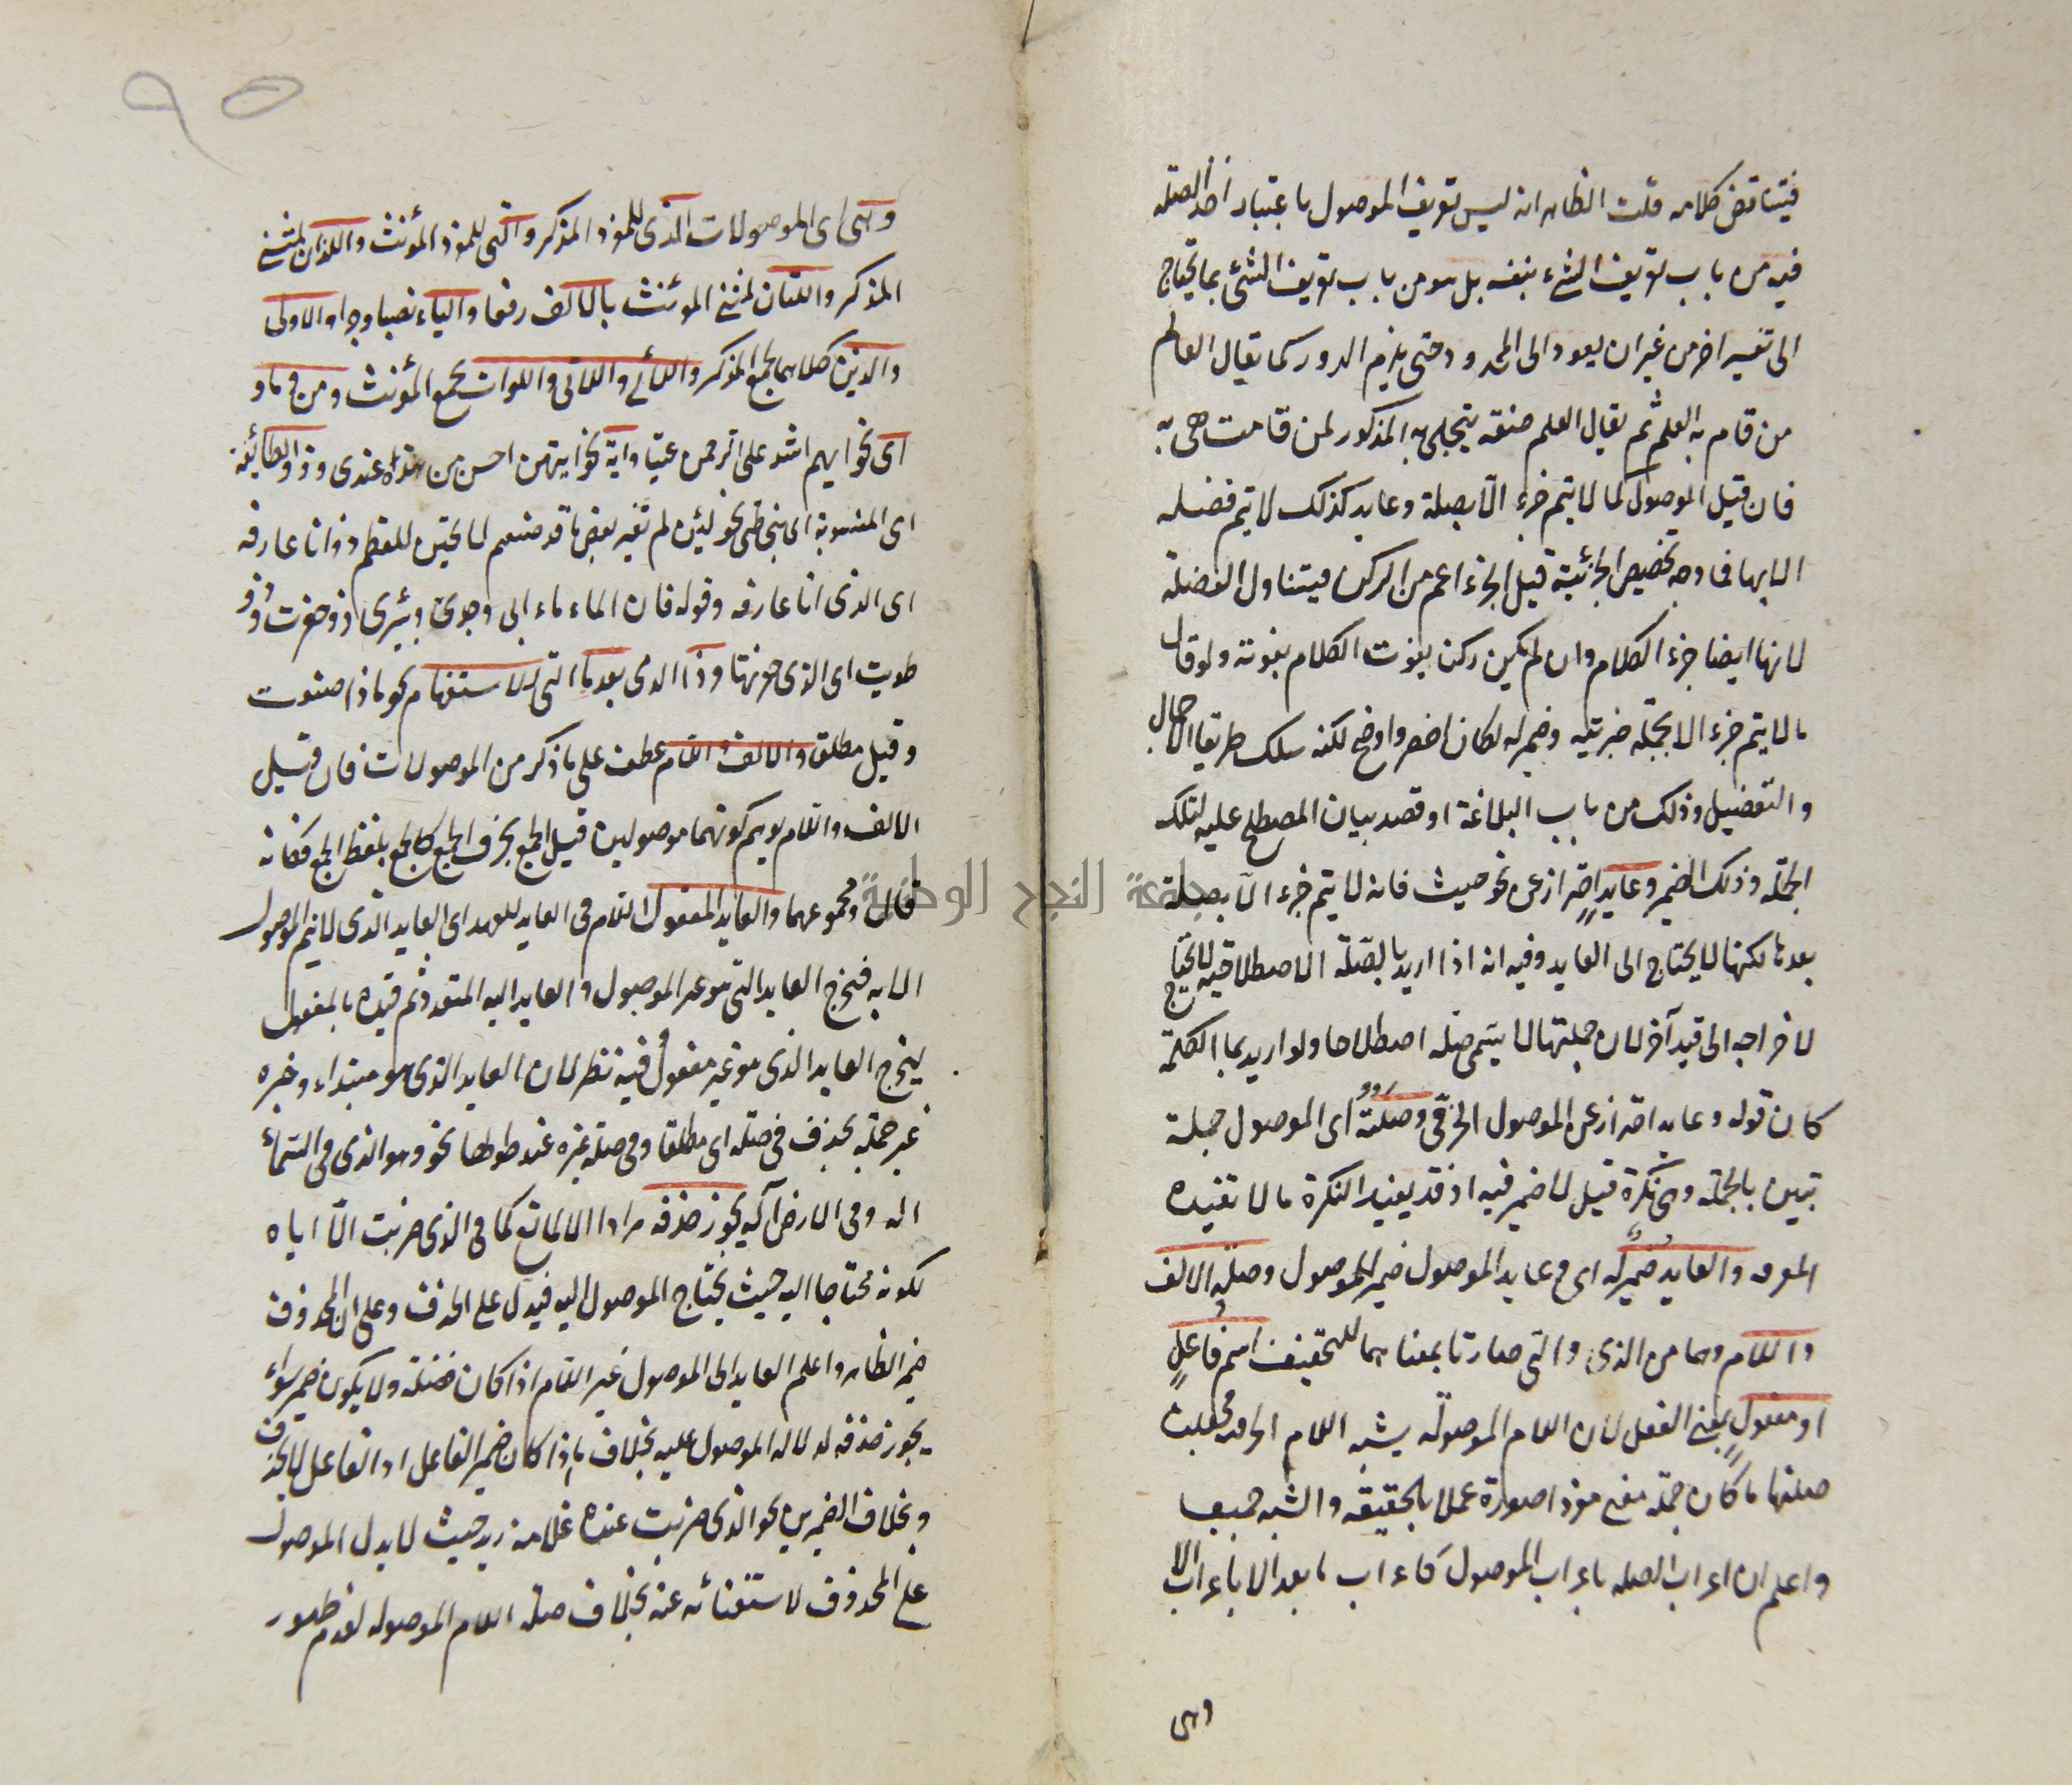 فيتناقض كلامه قلت الظاهر انه ليس تعريف الموصول باعتبار اخذ الصلة
فيه من باب تعريف الشيء بنفسه بل هو من باب تعريف الشئ بما يحتاج
الى تفسير اخر من غير ان يعود الى المحدود حتى يلزم الدور كما يقال العالم
من قام به العلم ثم يقال العلم صفة يتجلى به المذكور لمن قامت هي به
فان قيل الموصول كما لا يتم جزء الا بصلة وعايد كذلك لا يتم فضلة
الا بهما فما وجه تخصيص الجزئية قيل الجزء اعم من الركن فيتناول الفضلة
لانها ايضا جزء الكلام وان لم يكن ركن يفوت الكلام بفوته ولو قال
ما لا يتم جزء الا بجملة خبرية وضمير له لكان اخصر واوضح لكنه سلك طريقا الاجمال
والتفصيل وذلك من باب البلاغة او قصد بيان المصطلح عليه لتلك
الجملة وذلك الضمير وعايد احترازعن نحو حيث فانه لا يتم جزء الا بصلة
بعدها لكنها لا يحتاج الى العايد وفيه انه اذا اريد بالصلة الاصطلاحية لا يحتاج
لاخراجه الى قيد آخر لان جملتها لا يسمى صلة اصطلاحا ولو اريد بما الكلمة
كان قوله وعايد احتراز عن الموصول الحرفي وصلته اى الموصول جملة
تبين بالجملة وهي نكرة قيل لا ضمير فيه اذ قد يفيد النكرة ما لا تفيده
المعرفه والعايد ضمير له اى وعايد الموصول ضمير للموصول وصلة الالف
واللام وهما من الذى والتى صارتا بمعناهما للتخفيف اسم فاعل
او مفعول بمعنى الفعل لان اللام الموصولة يشبه اللام الحرفية فجعلت
صلتها ما كان جملة معنى مفردا صورة عملا بالحقيقة والشبه جميعا
واعلم ان اعراب الصلة باعراب الموصول كاعراب ما بعد الا باعراب الا
وهى
٩٥
وهى اى الموصولات الذى للمفرد المذكر والتى للمفرد المؤنث واللذان لمثنى
المذكر واللتان لمثنى المؤنث بالالف رفعا والياء نصبا وجرا والاولى
والذين كلاهما لجمع المذكر واللائى واللاتى واللوات لجمع المؤنث ومن وما و
اى نحو ايهم اشد على الرحمن عتيا واية نحو ايتهن احسن من هذه عندى وذو الطائية
اى المنسوبة الى بنى طى نحو لئن لم تغير بعض ما قد صنعتم لانتحين للعظم ذو انا عارفه
اى الذى انا عارفه وقوله فان الماء ماء ابى وجدى وبئرى ذو حفرت وذو
طويت اى الذى حفرتها وذا الذى بعد ما التى للاستفهام نحو ماذا صنعت
وقيل مطلقا والالف واللام عطف على ما ذكر من الموصولات فان قيل
الالف واللام يوهم كونهما موصولين قيل الجمع بحرف الجمع كالجمع بلفظ الجمع فكانه
قال ومجموعهما والعايد المفعول اللام فى العايد للعهد اى العايد الذى لا يتم الموصول
الا به فخرج العايد التى هو غير الموصول والعايد اليه المتعدد ثم قيده بالمفعول
ليخرج العايد الذى هو غير مفعول وفيه نظر لان العايد الذى هو مبتداء وخبره
غير جملة يحذف فى صلة اى مطلقا وفى صلة غيره عند طولها نحو وهو الذى فى السماء
اله وفى الارض آله يجوز حذفه مرادا الا لمانع كما فى الذى ضربت الا اياه
لكونه محتاجا اليه حيث يحتاج الموصول اليه فيدل على الحذف وعلى ان المحذوف
ضمير الظاهر واعلم العايد الى الموصول غير اللام اذا كان فضلة ولا يكون ضمير سواه
يجوز حذفه لدلالة الموصول عليه بخلاف ما اذا كان ضمير الفاعل اذ الفاعل لا يحذف
وبخلاف الضميرين نحو الذى ضربت عنده غلامه زيد حيث لا يدل الموصول
على المحذوف لاستغنائه عنه بخلاف صلة اللام الموصوله لعدم ظهور
جامعة النجاح الوطنية